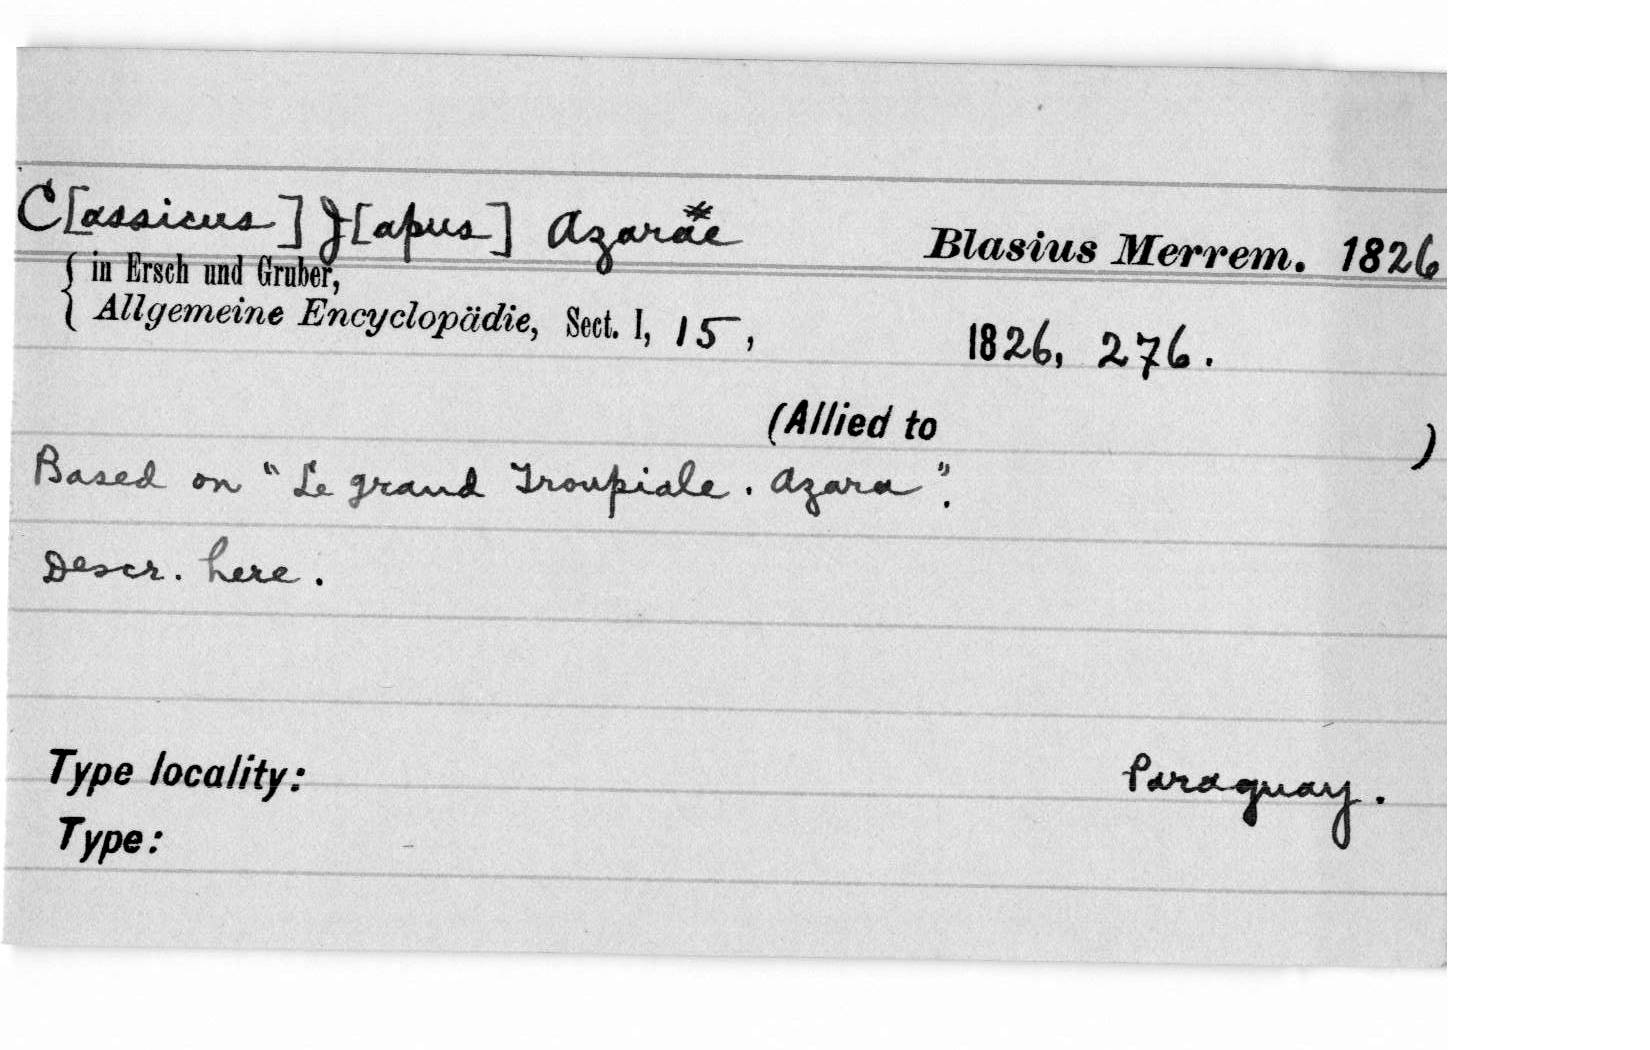 C[assicus] J[apus] Azarae* Blasius Merrem. 1826
{ in Ersch und Gruber,
Allgemeine Encyclopädie, Sect. I, 15, 1826, 276.
(Allied to )
Based on "Le grand Troupiale. Azara".
Descr. here.
Type locality: Paraguay.
Type: